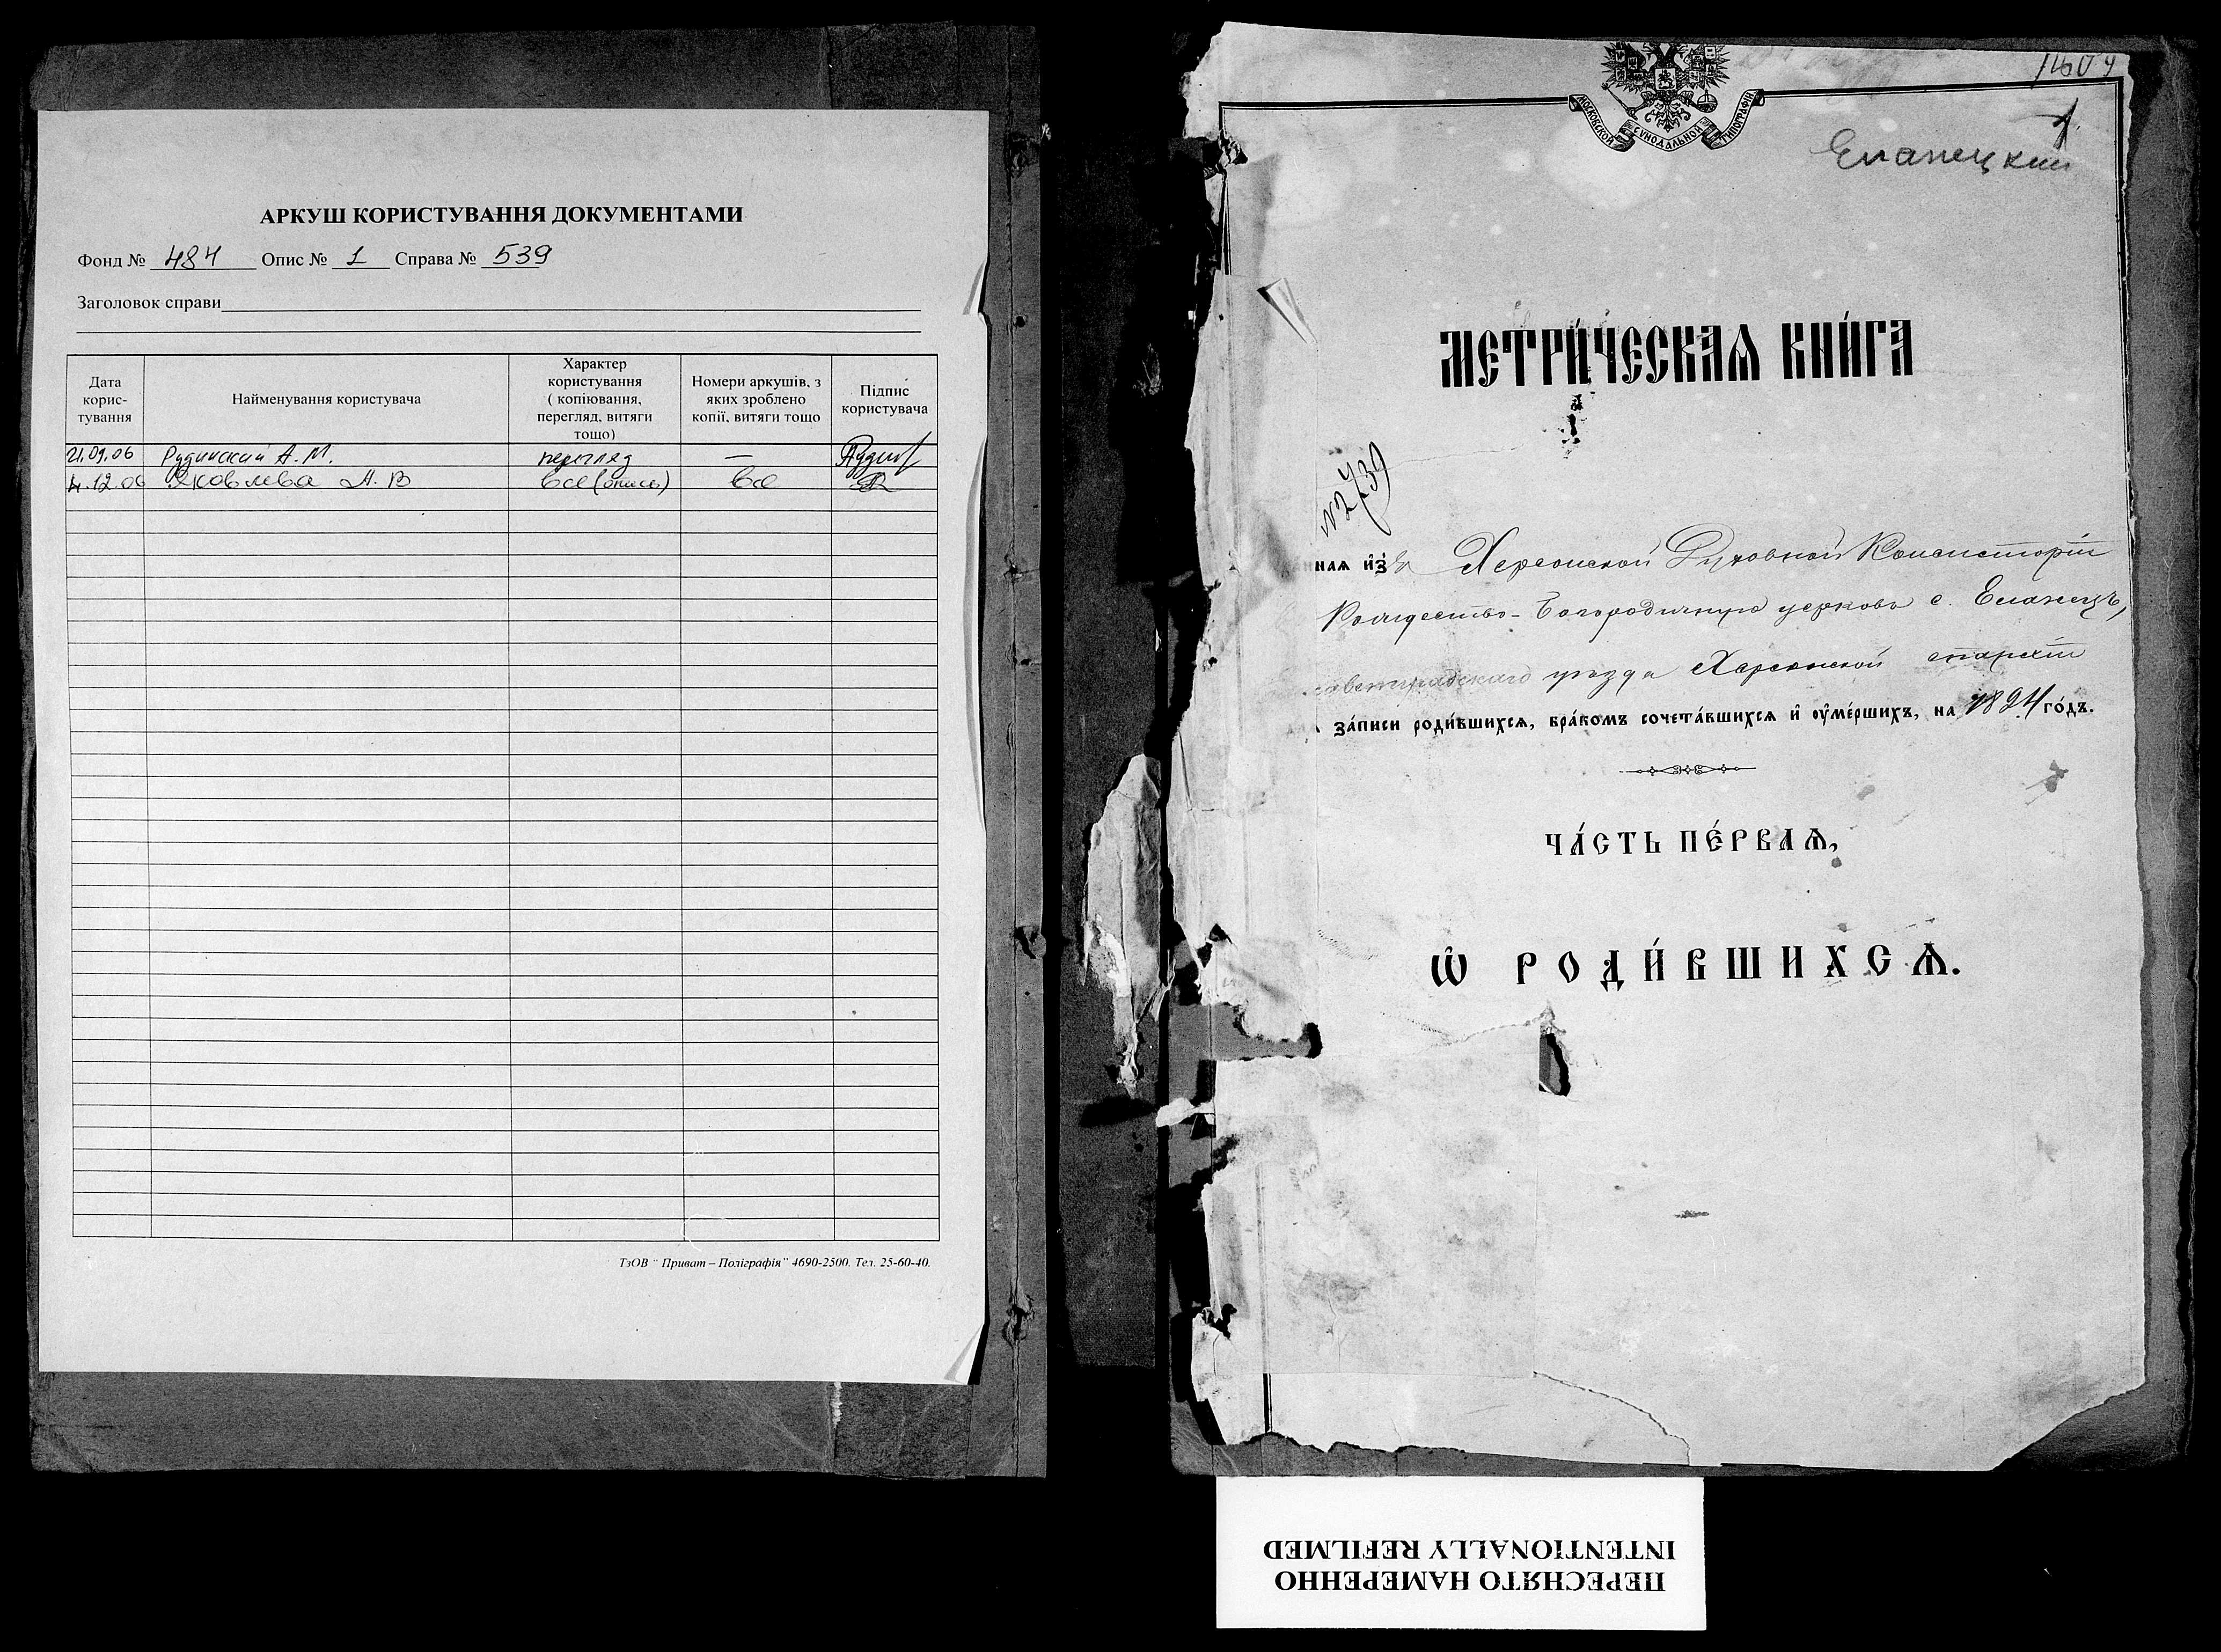 АРКУШ КОРИСТУВАННЯ ДОКУМЕНТАМИ
Фонд № 484 Опис № 1 Справа № 539
Заголовок справи
Дата корис-тування
Найменування користувача
Характер користування ( копіювання, перегляд, витяги тощо)
Номери аркушів, з яких зроблено копії, витяги тощо
Підпис користувача
21.09.06 Рудинский А. М. перегляд —
4.12.06 Яковлева А. В все (опись) все
ТзОВ " Приват – Поліграфія" 4690-2500. Тел. 25-60-40.
МОСКОВСКОЙ СѴНОДАЛЬНОЙ ТИПОГРАФІИ
Еланецкий
МЕТРИ́ЧЕСКАѦ КНИ́ГА
наѧ и҆з Херсонской Духовной Консисторіи
Рождество-Богородичную церковь с. Еланецъ,
уѣзда Херсонской епархіи
за́писи роди́вшихсѧ, бра́комъ сочета́вшихсѧ и҆ ᲂу҆ме́ршихъ, на 1894 го́дъ.
ЧА́СТЬ ПЕ́РВАѦ,
Ѽ РОДИ́ВШИХСѦ.
ПЕРЕСНЯТО НАМЕРЕННО
INTENTIONALLY REFILMED